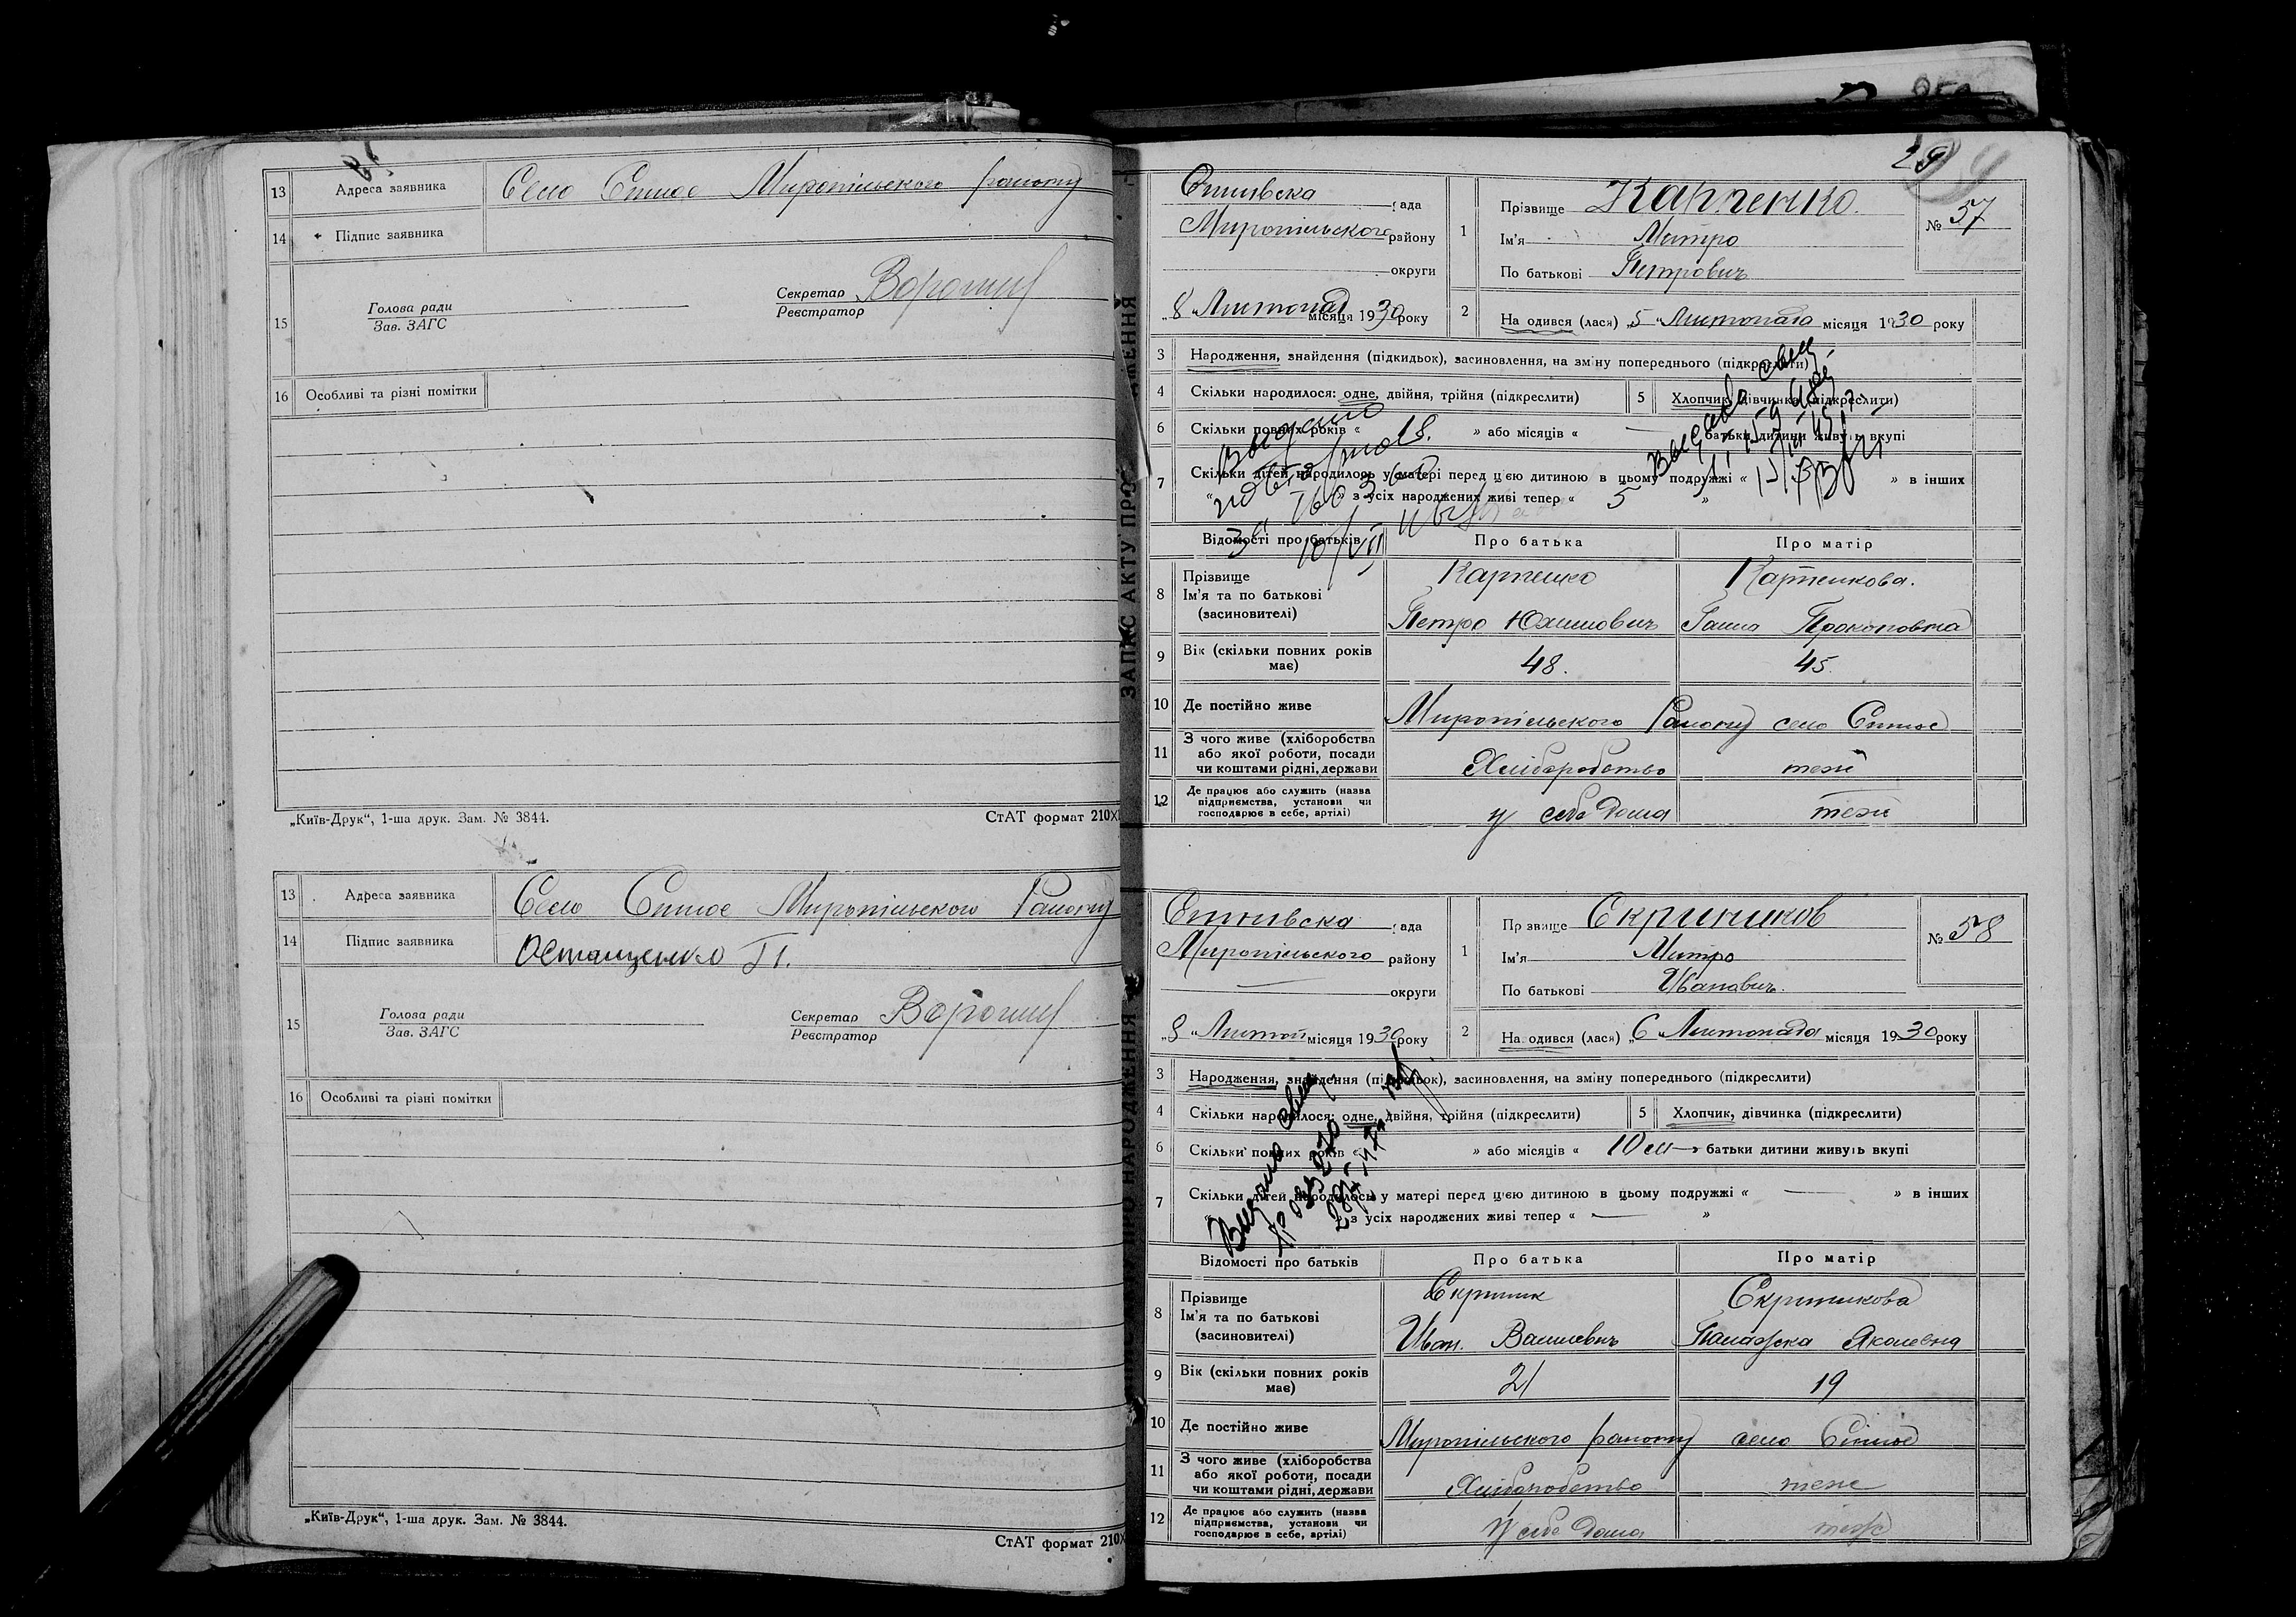 13 Адреса заявника Село Єпное Миропільского району
14 Підпис заявника
15 Голова ради
Зав. ЗАГС
Секретар
Реєстратор
16 Особливі та різні помітки
„Київ-Друк“, 1-ша друк. Зам. № 3844.
СтАТ формат 210Х
13 Адреса заявника Село Миропільского Району
14 Підпис заявника Остащенко П.
15 Голова ради
Зав. ЗАГС
Секретар
Реєстратор
16 Особливі та різні помітки
„Київ-Друк“, 1-ша друк. Зам. № 3844.
СтАТ формат 210Х
ЗАПИС АКТУ ПРО НАРОДЖЕННЯ
29
рада
Миропільского району
округи
„8“ Листопад місяця 1930 року
1 Прізвище Карпенко.
Ім'я Митро
По батькові Петрович
№ 57
2 Народився (лася) „5“ Листопада місяця 1930 року
3 Народження, знайдення (підкидьок), засиновлення, на зміну попереднього (підкреслити)
4 Скільки народилося: одне, двійня, трійня (підкреслити)
5 Хлопчик, дівчинка (підкреслити)
6 Скільки повних років « 18. » або місяців « батьки дитини живуть вкупі
7 Скільки дітей народилось у матері перед цією дитиною в цьому подружжі « » в інших
« » з усіх народжених живі тепер « 5 »
Відомості про батьків Про батька Про матір
8 Прізвище Карпенко Карпенкова.
Ім'я та по батькові
(засиновителі) Петро Юхимович Ганна Прокоповна
9 Вік (скільки повних років
має) 48. 45.
10 Де постійно живе Миропільского Району село
11 З чого живе (хліборобства
або якої роботи, посади
чи коштами рідні, держави Хліборобство теж
12 Де працює або служить (назва
підприємства, установи чи
господарює в себе, артілі) у себе дома теж
рада
Миропільского району
округи
„8“ Листоп місяця 1930 року
1 Прізвище Скриников
Ім'я Митро
По батькові Иванович.
№ 58
2 Народився (лася) „6 Листопада місяця 1930 року
3 Народження, знайдення (підкидьок), засиновлення, на зміну попереднього (підкреслити)
4 Скільки народилося: одне, двійня, трійня (підкреслити)
5 Хлопчик, дівчинка (підкреслити)
6 Скільки повних років « » або місяців « 10 м батьки дитини живуть вкупі
7 Скільки дітей народилось у матері перед цією дитиною в цьому подружжі « — » в інших
« » з усіх народжених живі тепер « — »
Відомості про батьків Про батька Про матір
8 Прізвище Скриник Скриникова
Ім'я та по батькові
(засиновителі) Иван. Василевич Палажка Яковлевна
9 Вік (скільки повних років
має) 21 19
10 Де постійно живе Миропільского району село
11 З чого живе (хліборобства
або якої роботи, посади
чи коштами рідні, держави Хліборобство теж
12 Де працює або служить (назва
підприємства, установи чи
господарює в себе, артілі) У себе дома теж